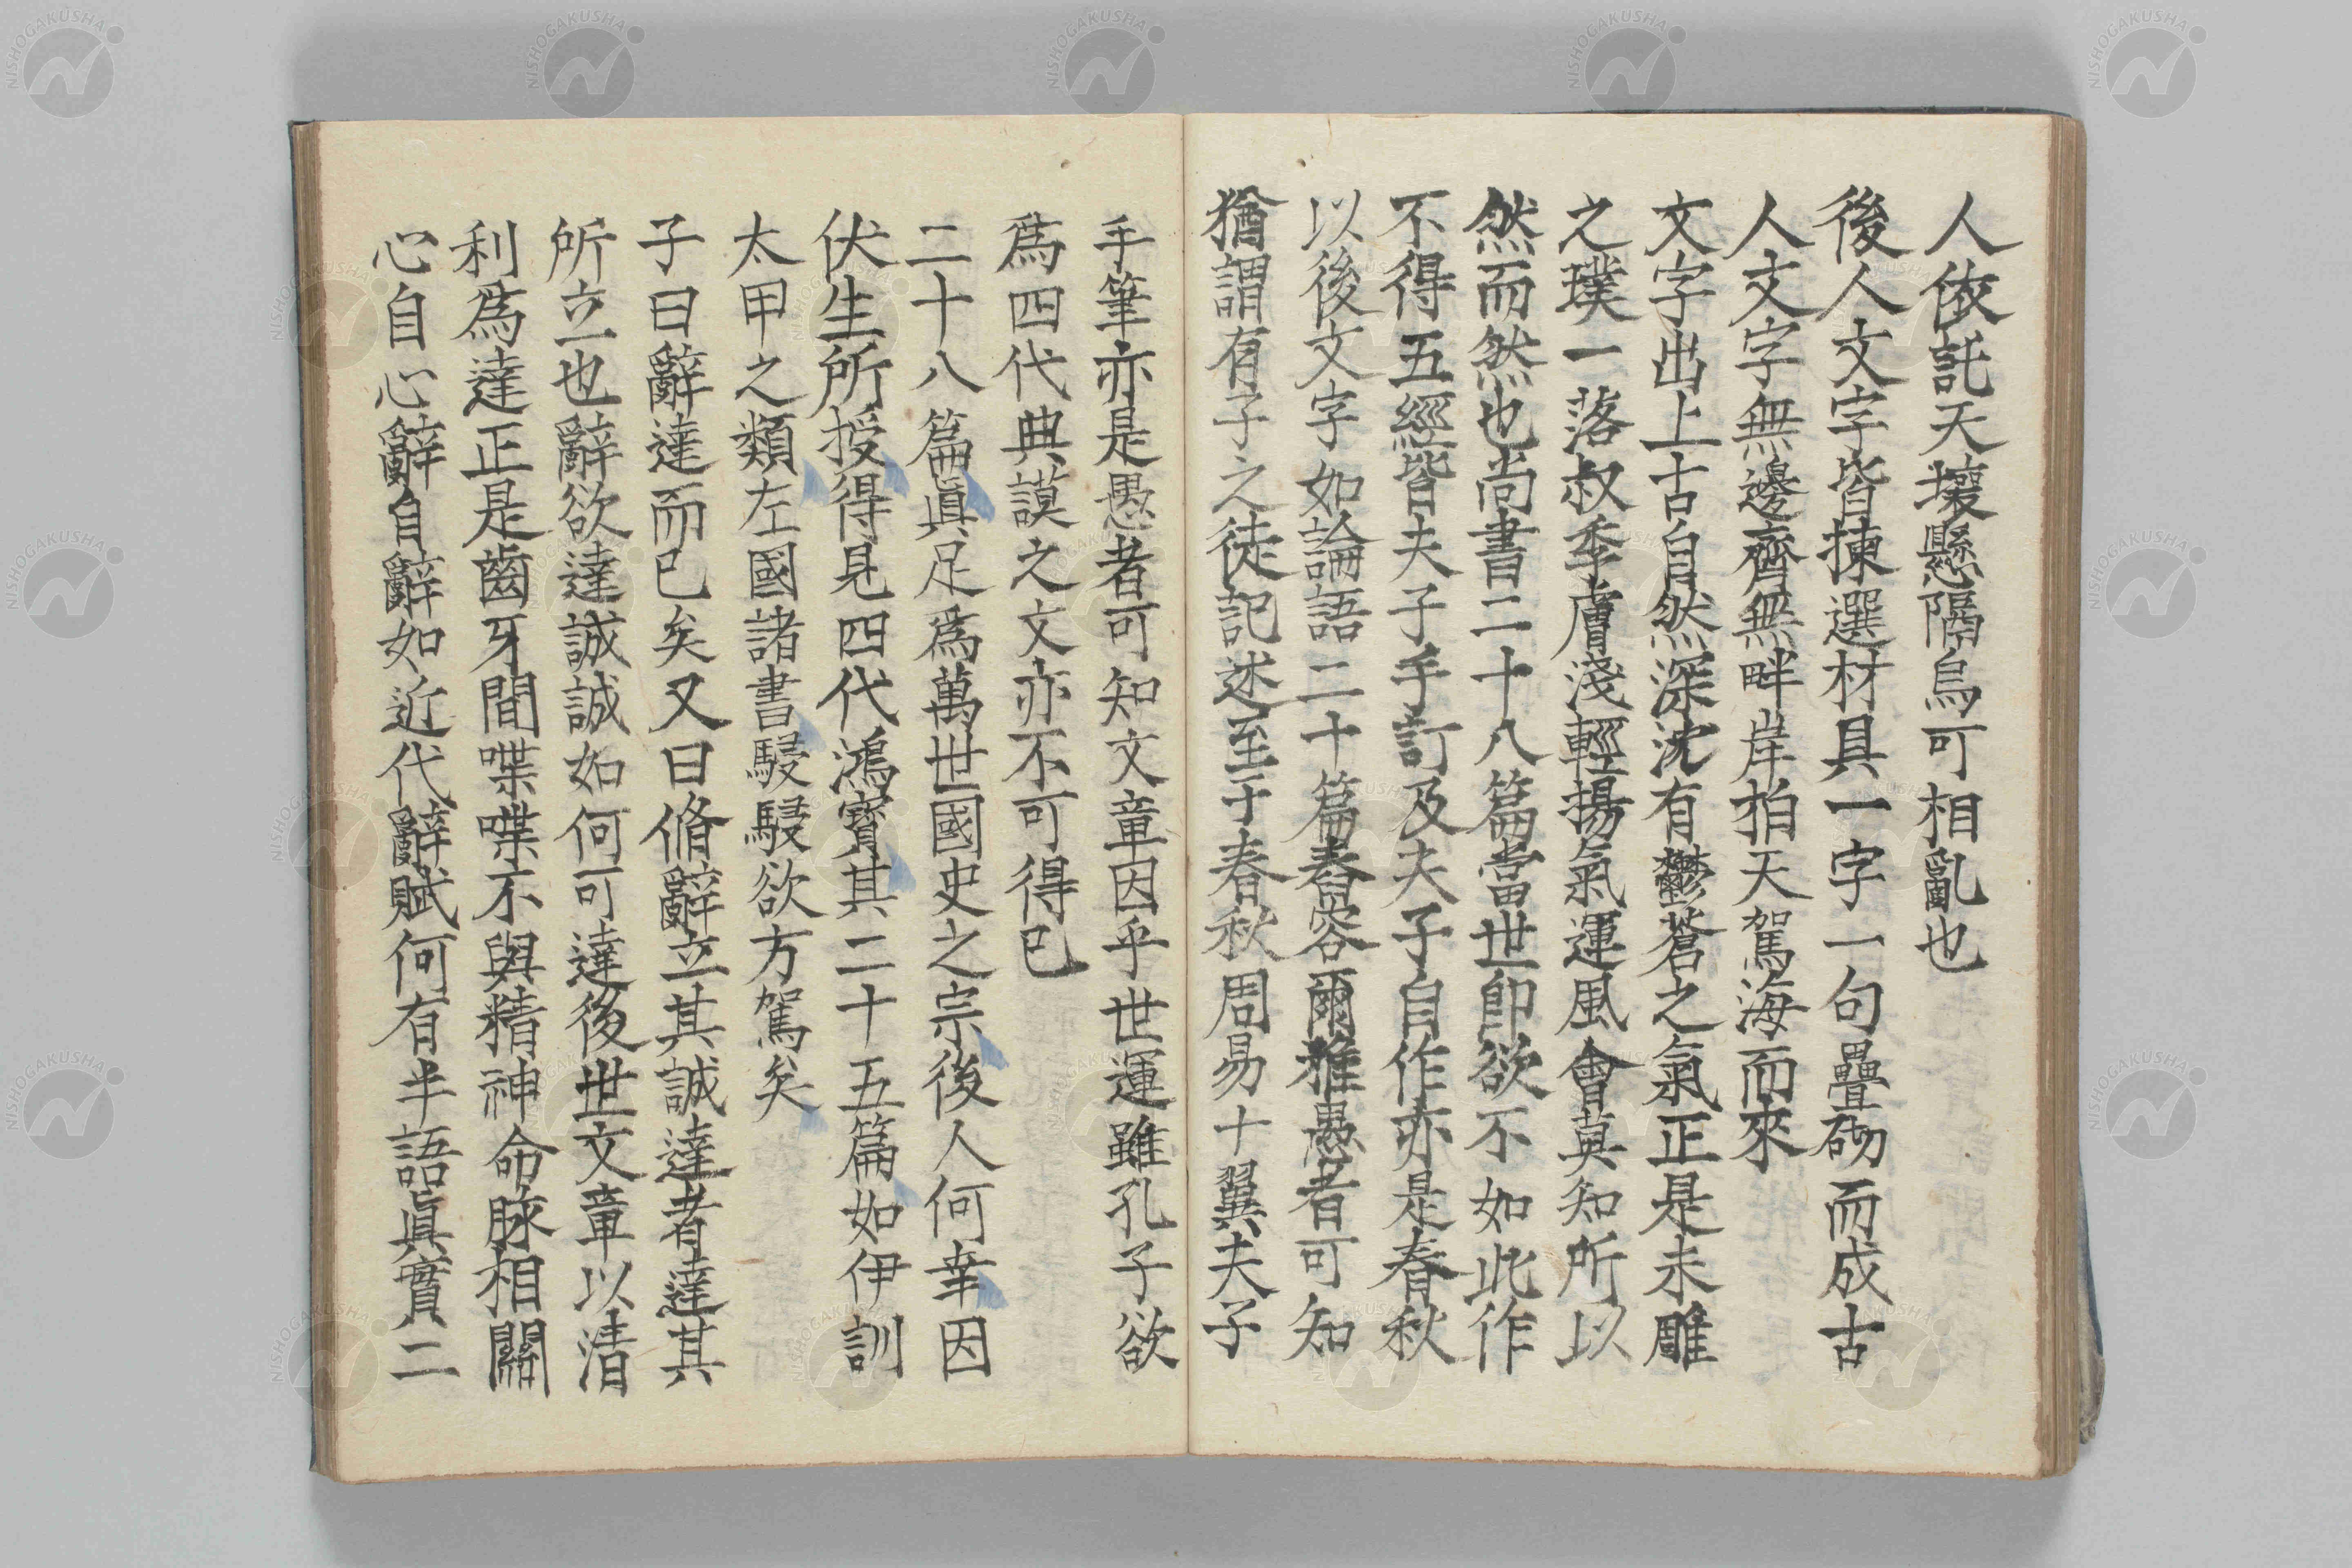 人依託天壤懸隔烏可相亂也
後人文字皆揀選材具一字一句疊砌而成古
人文字無邊齊無畔岸拍天駕海而來
文字出上古自然深沈有鬱蒼之氣正是未雕
之璞一落叔季膚淺輕揚氣運風會莫知所以
然而然也尚書二十八篇當世卽欲不如此作
不得五經皆夫子手訂及夫子自作亦是春秋
以後文字如論語二十篇春容爾雅愚者可知
猶謂有子之徒記述至于春秋周易十翼夫子
手筆亦是愚者可知文章因乎世運雖孔子欲
爲四代典謨之文亦不可得已
二十八篇眞足爲萬世國史之宗後人何幸因
伏生所授得見四代鴻寶其二十五篇如伊訓
太甲之類左國諸書駸駸欲方駕矣
子曰辭達而已矣又曰脩辭立其誠達者達其
所立也辭欲達誠誠如何可達後世文章以清
利爲達正是齒牙間喋喋不與精神命脉相關
心自心辭自辭如近代辭賦何有半語眞實二